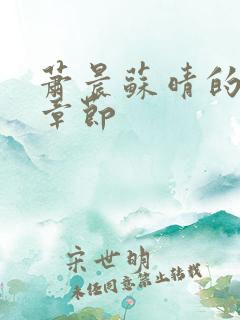 蕭晨蘇晴的
章節
宋世明
未经同意禁止转载